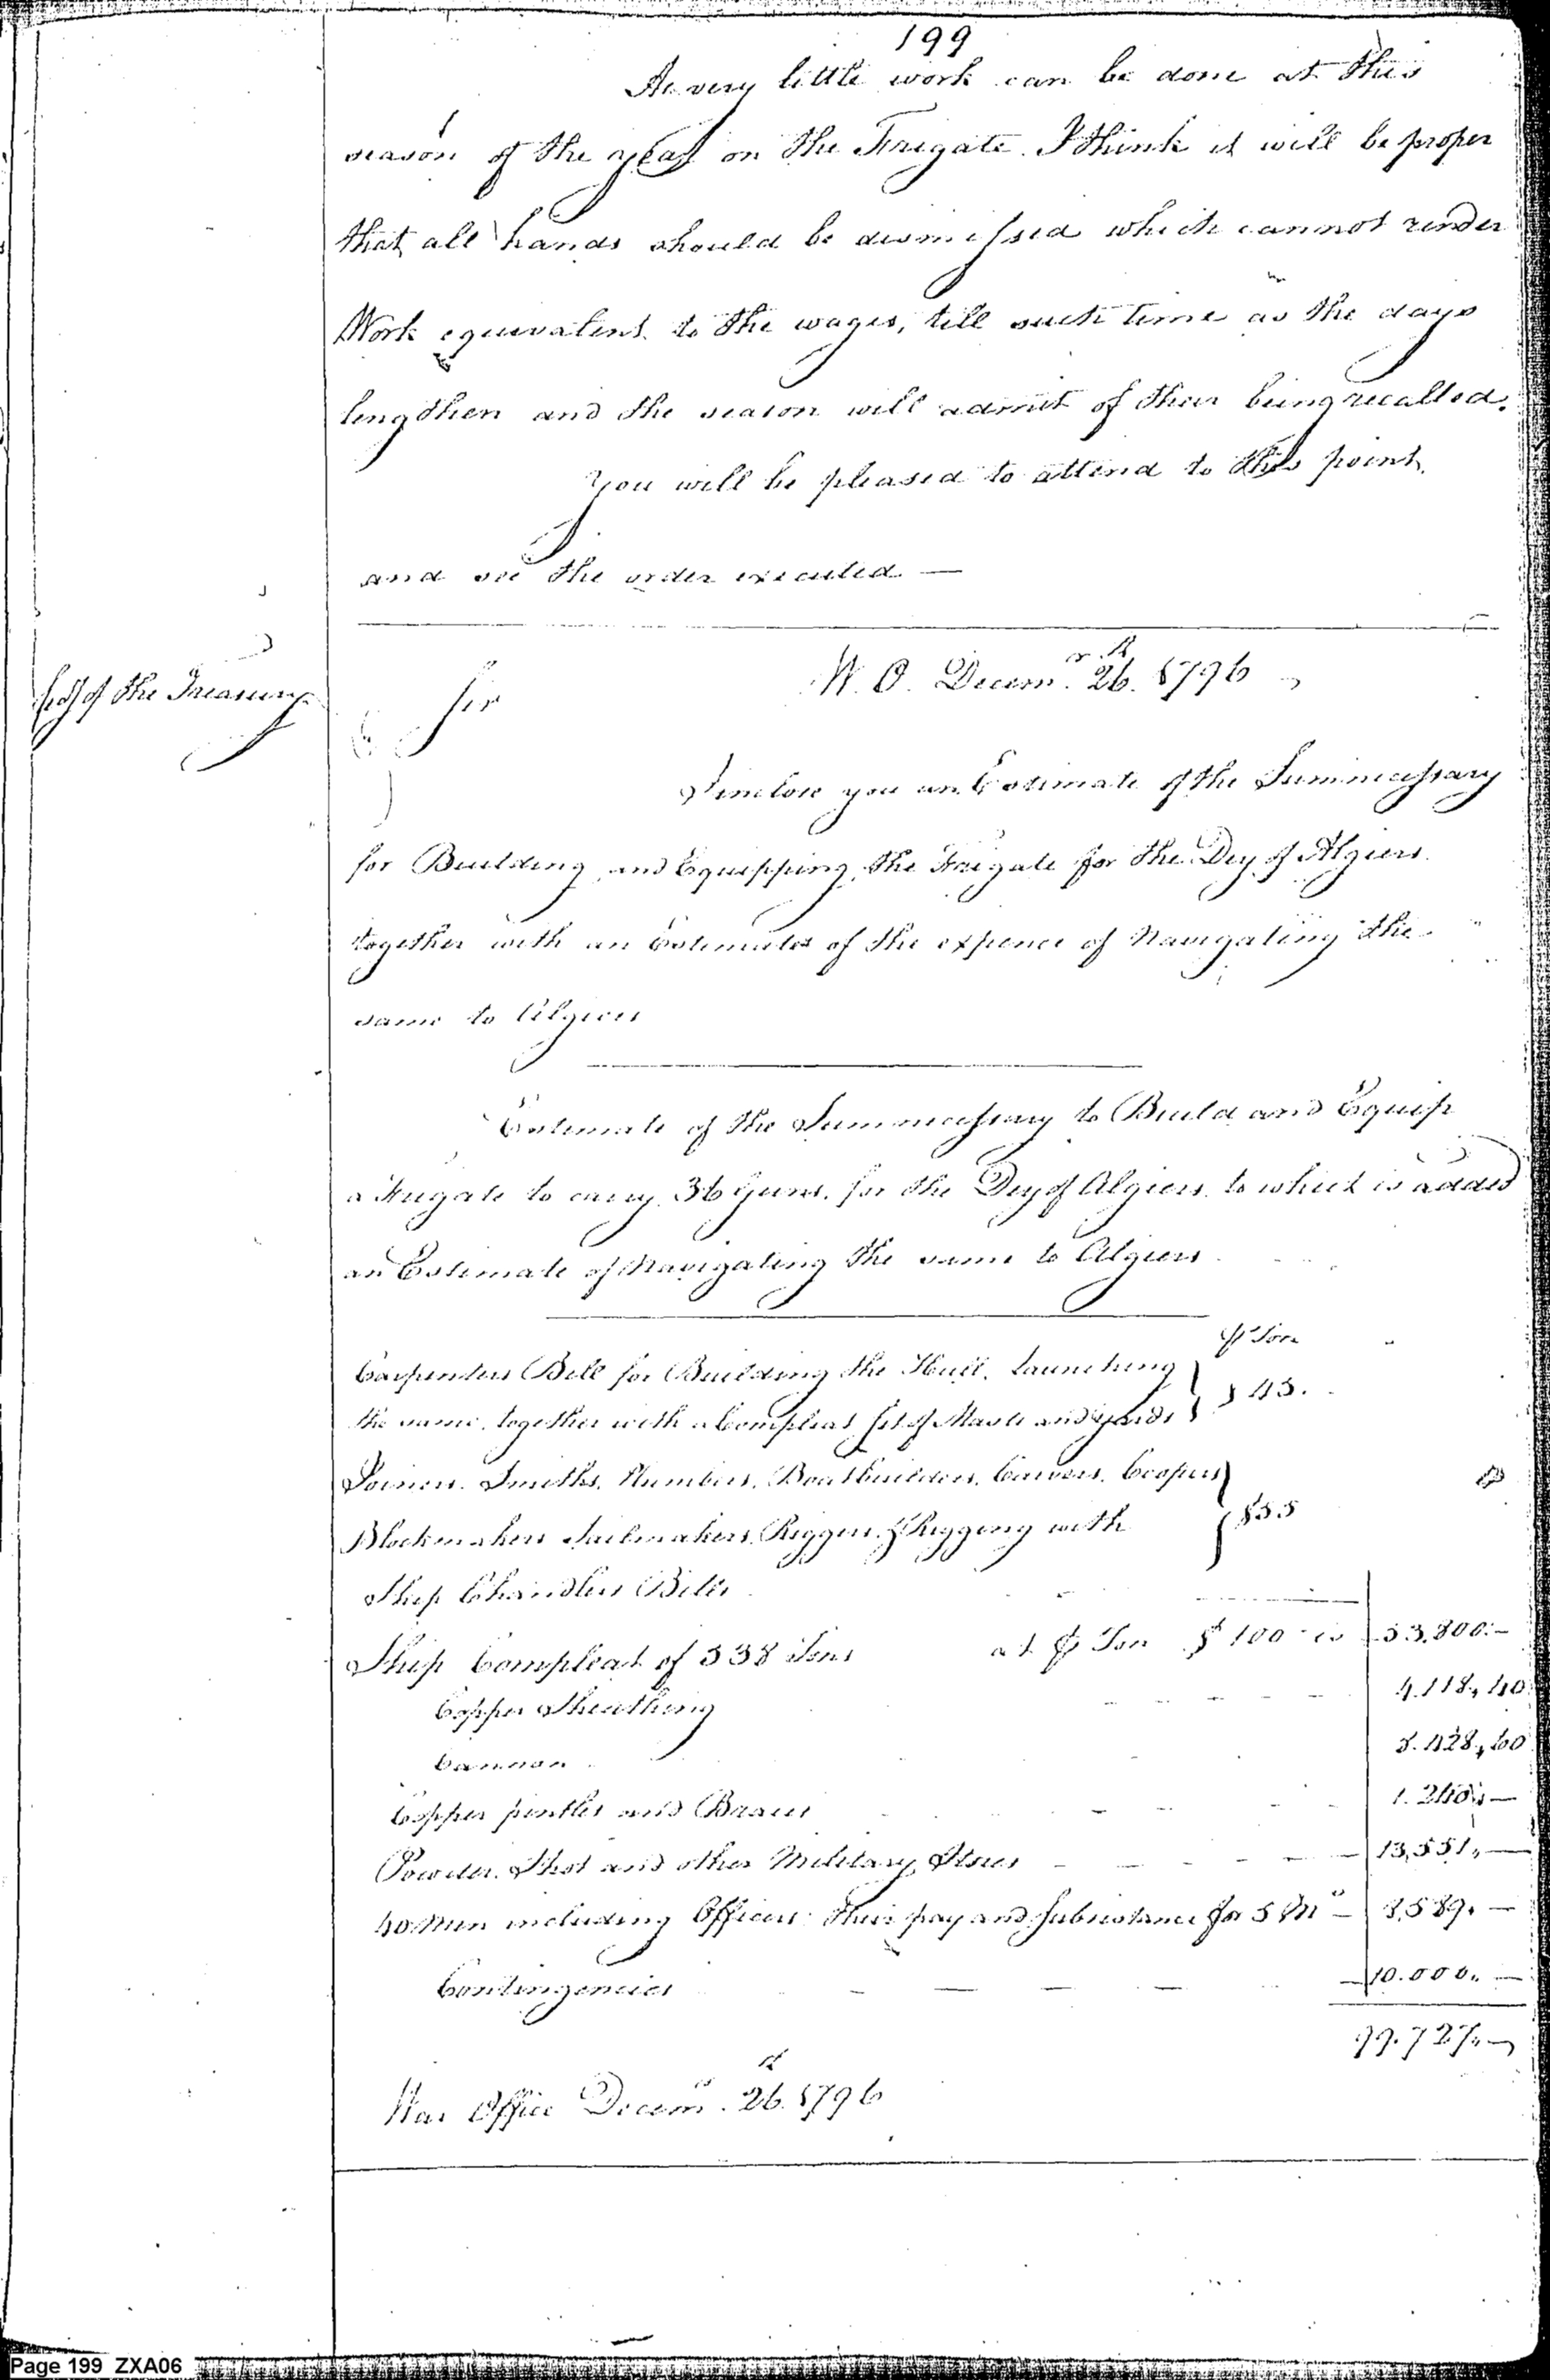 199
As very little work can be done at this
season of the year on the Frigate. I think it will be proper
that all hands should be dismissed which cannot render
Work equivalent to the wages, till such time as the days
lengthen and the season will admit of their being recalled.
You will be pleased to attend to this point
and see the order executed —
W. O. Decemr. 26. 1796
Secy of the Treasury
Sir
I inclose you an Estimate of the Sum necessary
for Building and Equipping the Frigate for the Dey of Algiers
together with an Estimates of the expence of Navigating the
same to Algiers
Estimate of the Sum necessary to Build and Equip
a Frigate to carry 36 Guns. for the Dey of Algiers to which is added
an Estimate of Navigating the same to Algiers
⅌ Ton
Carpenters Bill for Building the Hull, Launching
the same, together with a Compleat set of Masts and yards } $ 45.
Joiners. Smiths. Plumbers. Boatbuilders. Carvers. Coopers
Blockmakers Sailmakers. Riggers. & Rigging with } $55
Ship Chandlers Bills
Ship Compleat of 538 Tons at ⅌ Ton $ 100 is 53.800.—
Copper Sheathing 4.118,, 40
Cannon 8.428,, 60
Copper pintles and Braces 1.240,,—
Powder. Shot and other Military Stores 13,551,,—
40 Men including Officers their pay and Subsistance for 5 Mo — 8,589. —
Contingencies 10.000,, —
99.727,,—
War Office Decemr. 26. 1796
Page 199 ZXA06